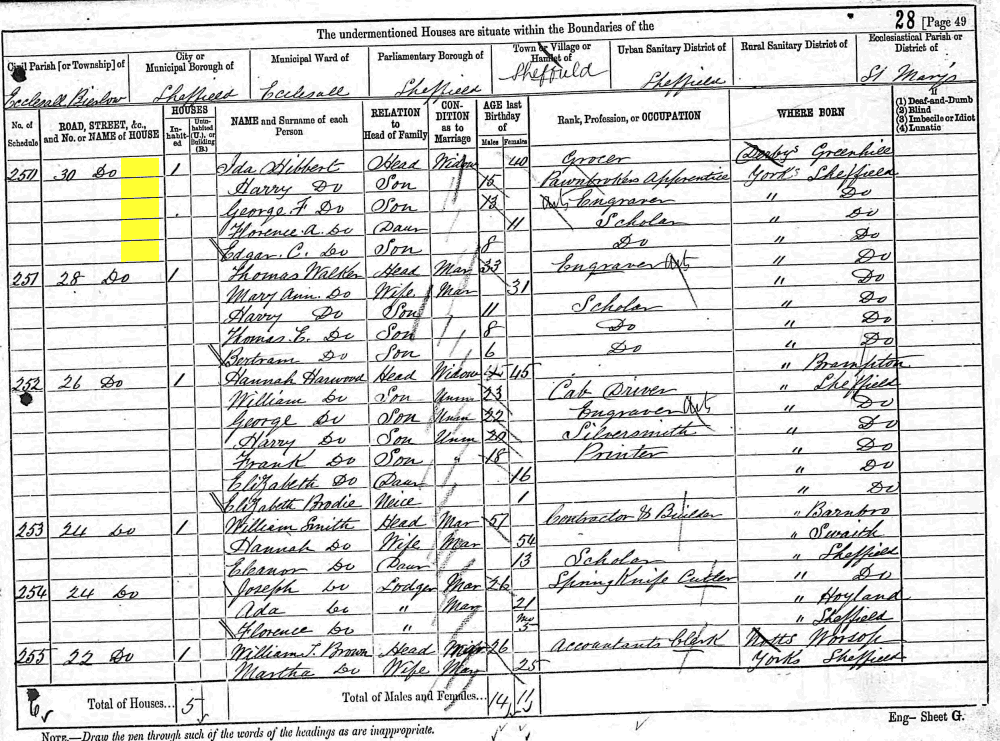 28 [Page 49
The undermentioned Houses are situate within the Boundaries of the
Civil Parish [or Township] of City or Municipal Borough of Municipal Ward of Parliamentary Borough of Town or Village or Hamlet of Urban Sanitary District of Rural Sanitary District of Ecclesiastical Parish or District of
Ecclesall Bierlow Sheffield Ecclesall Sheffield Sheffield Sheffield St Mary's
No. of Schedule ROAD, STREET, &c., and No. or NAME of HOUSE HOUSES Inhabited Uninhabited (U.), or Building (B.) NAME and Surname of each Person RELATION to Head of Family CONDITION as to Marriage AGE last Birthday of Males Females Rank, Profession, or OCCUPATION WHERE BORN If (1) Deaf-and-Dumb (2) Blind (3) Imbecile or Idiot (4) Lunatic
250 30 Do 1 Ida Hibbert Head Widow 40 Grocer Derbys Greenhill
Harry Do Son 15 Pawnbrokers Apprentice Yorks Sheffield
George F Do Son 13 Engraver " Do
Florence A. Do Daur 11 Scholar " Do
Edgar. C. Do Son 8 Do " Do
251 28 Do 1 Thomas Walker Head Mar 33 Engraver Art " Do
Mary Ann. Do Wife Mar 31 " Do
Harry Do Son 11 Scholar " Do
Thomas. E. Do Son 8 Do " Do
Bertram Do Son 6 Do " Do
252 26 Do 1 Hannah Harwood Head Widow 45 " Brampton
William Do Son Unm 23 Cab Driver " Sheffield
George Do Son Unm 22 Engraver Art " Do
Harry Do Son Unm 20 Silversmith " Do
Frank Do Son " 18 Printer " Do
Elizabeth Do Daur 16 " Do
Elizabeth Brodie Neice 1 " Do
253 24 Do 1 William Smith Head Mar 57 Contractor & Builder " Barnbro
Hannah Do Wife Mar 54 " Swaith
Eleanor Do Daur 13 Scholar " Sheffield
254 24 Do Joseph Do Lodger Mar 26 Spring Knife Cutler " Do
Ada Do " Mar 21 " Hoyland
Florence Do " Mo 5 " Sheffield
255 22 Do 1 William T. Brown Head 26 Accountants Clerk Notts Worsop
Martha Do Wife Mar 25 Yorks Sheffield
6 Total of Houses... 5 Total of Males and Females... 14 11
Eng– Sheet G.
NOTE.—Draw the pen through such of the words of the headings as are inappropriate.